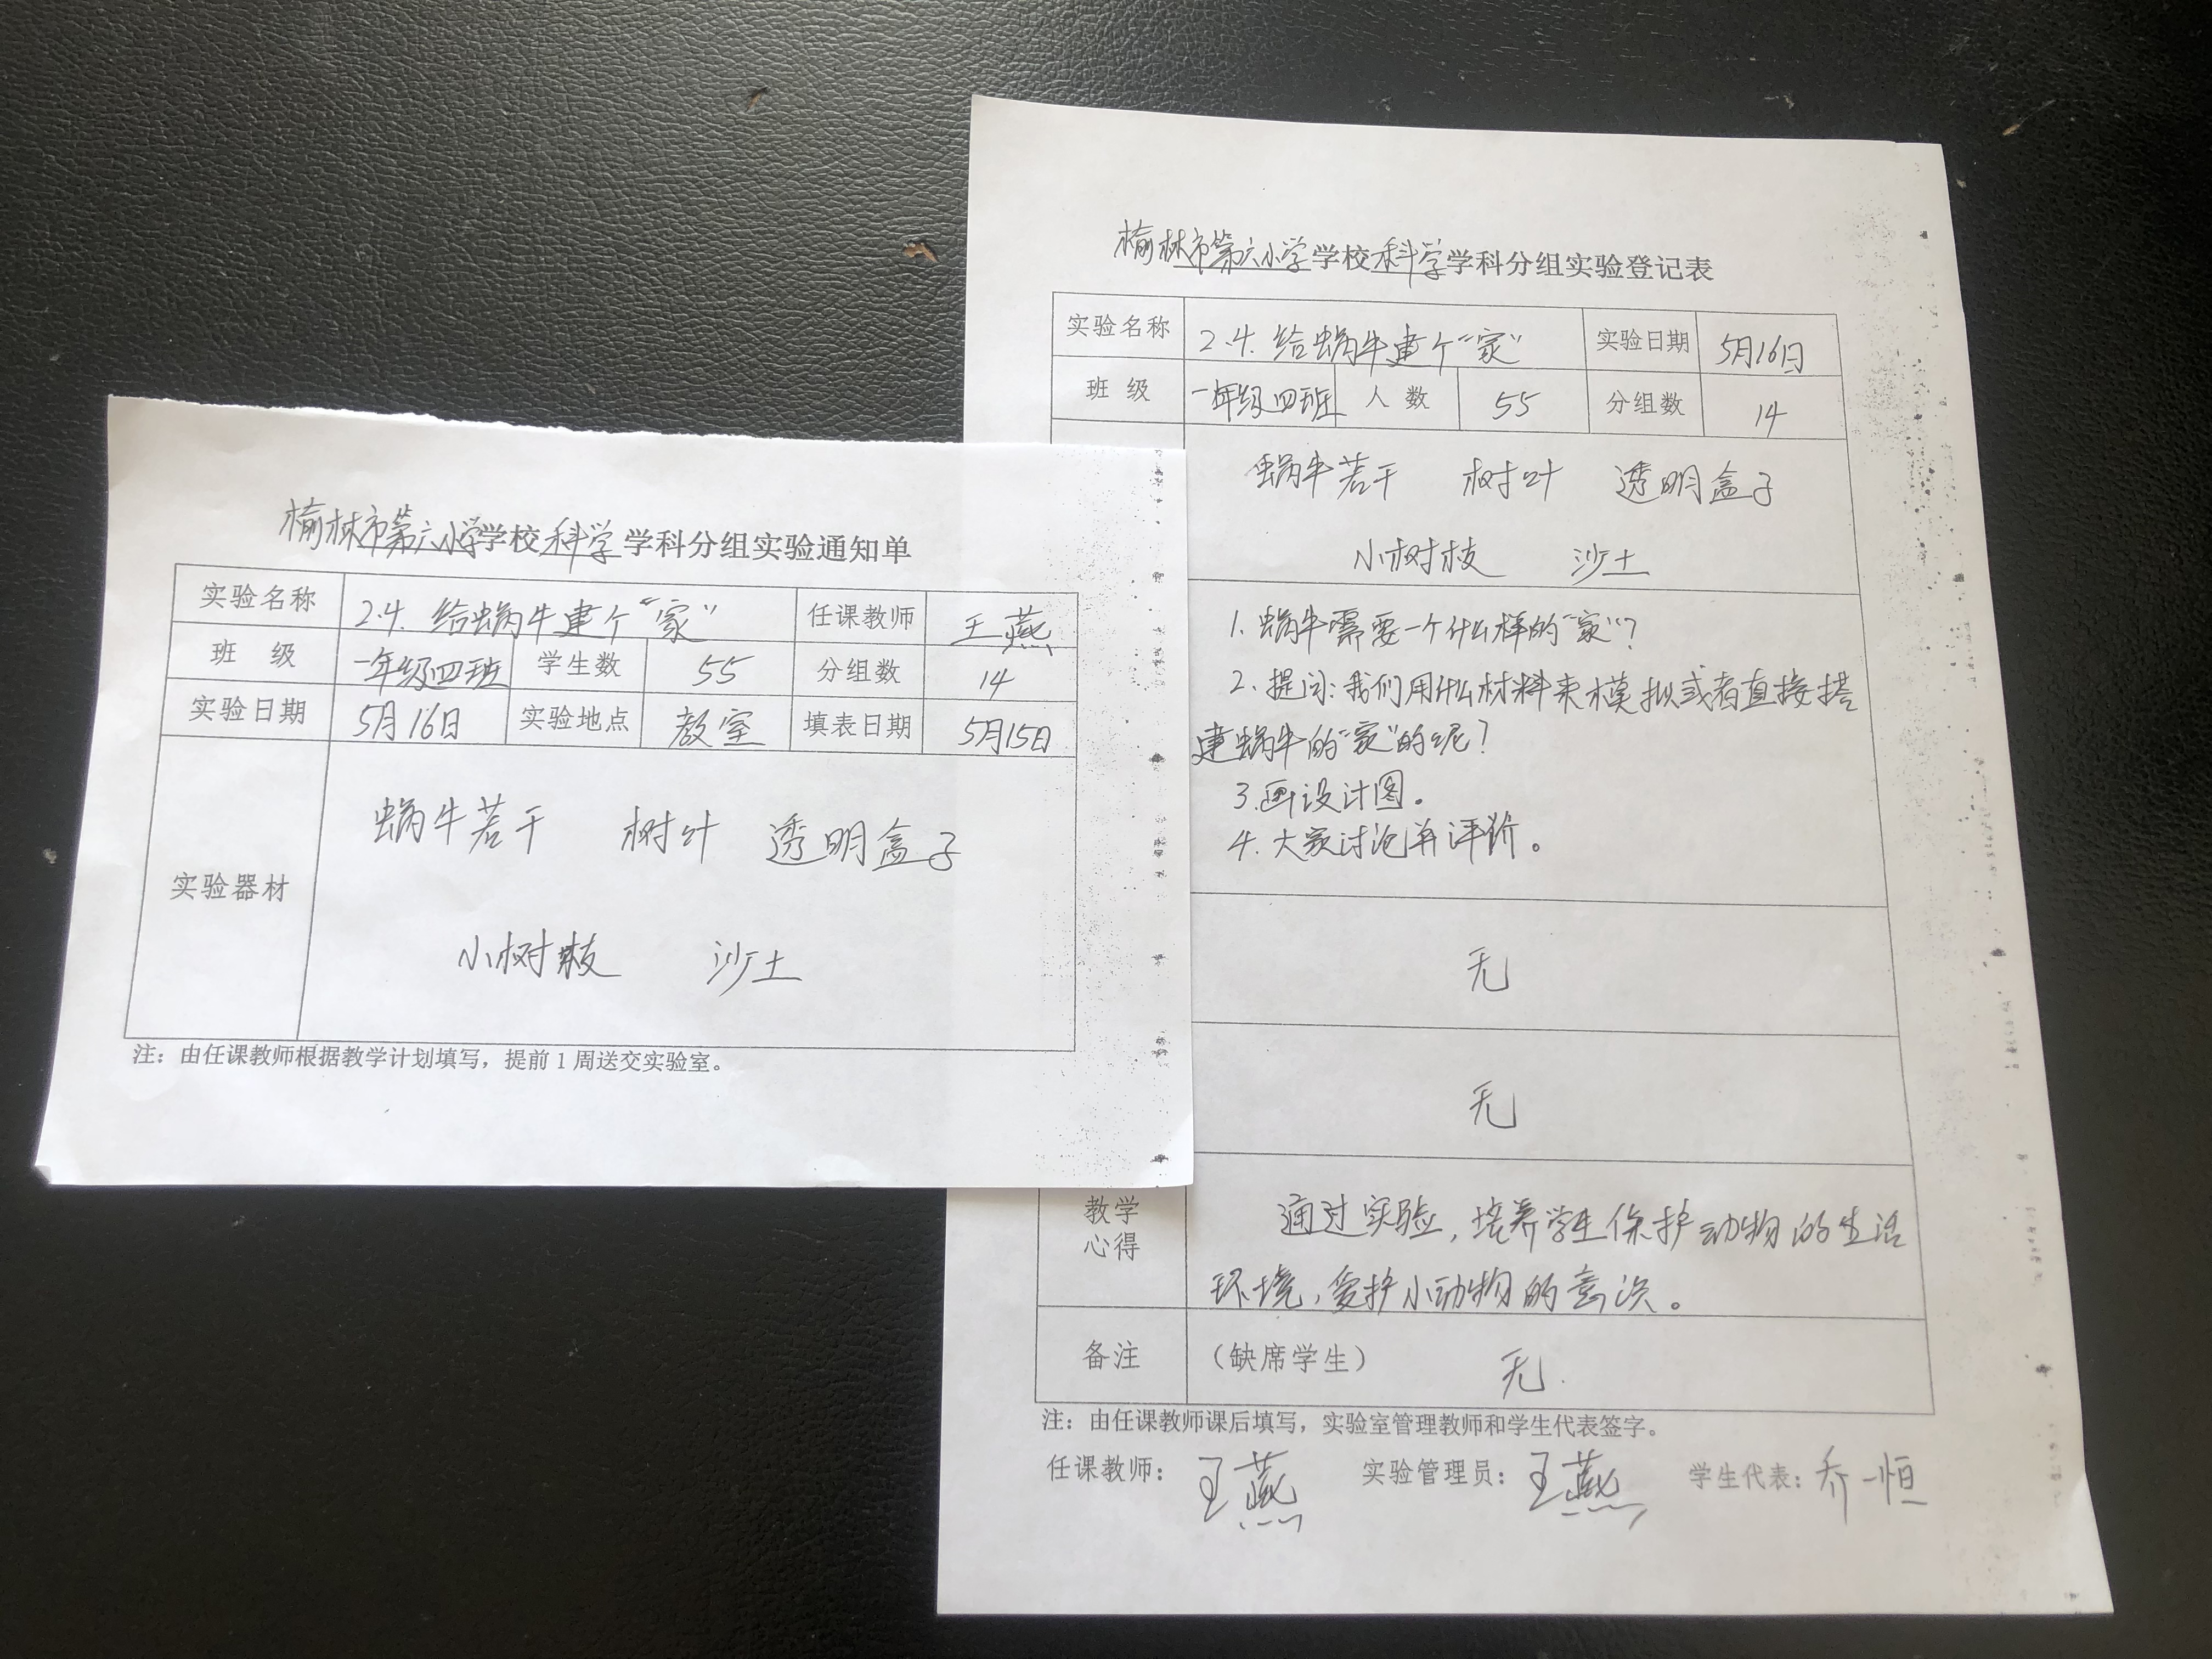 榆林市第六小学学校科学学科分组实验通知单
实验名称 2.4.给蜗牛建个“家” 任课教师 王燕
班 级 一年级四班 学生数 55 分组数 14
实验日期 5月16日 实验地点 教室 填表日期 5月15日
实验器材
蜗牛若干 树叶 透明盒子
小树枝 沙土
注：由任课教师根据教学计划填写，提前1周送交实验室。
榆林市第六小学学校科学学科分组实验登记表
实验名称 2.4.给蜗牛建个“家” 实验日期 5月16日
班 级 一年级四班 人数 55 分组数 14
蜗牛若干 树叶 透明盒子
小树枝 沙土
1.蜗牛需要一个什么样的“家”？
2.提问：我们用什么材料来模拟或者直接搭
建蜗牛的“家”的呢？
3.画设计图。
4.大家讨论并评价。
无
无
教学
心得
通过实验，培养学生保护动物的生活
环境，爱护小动物的意识。
备注 （缺席学生） 无.
注：由任课教师课后填写，实验室管理教师和学生代表签字。
任课教师：王燕 实验管理员：王燕 学生代表：乔一恒